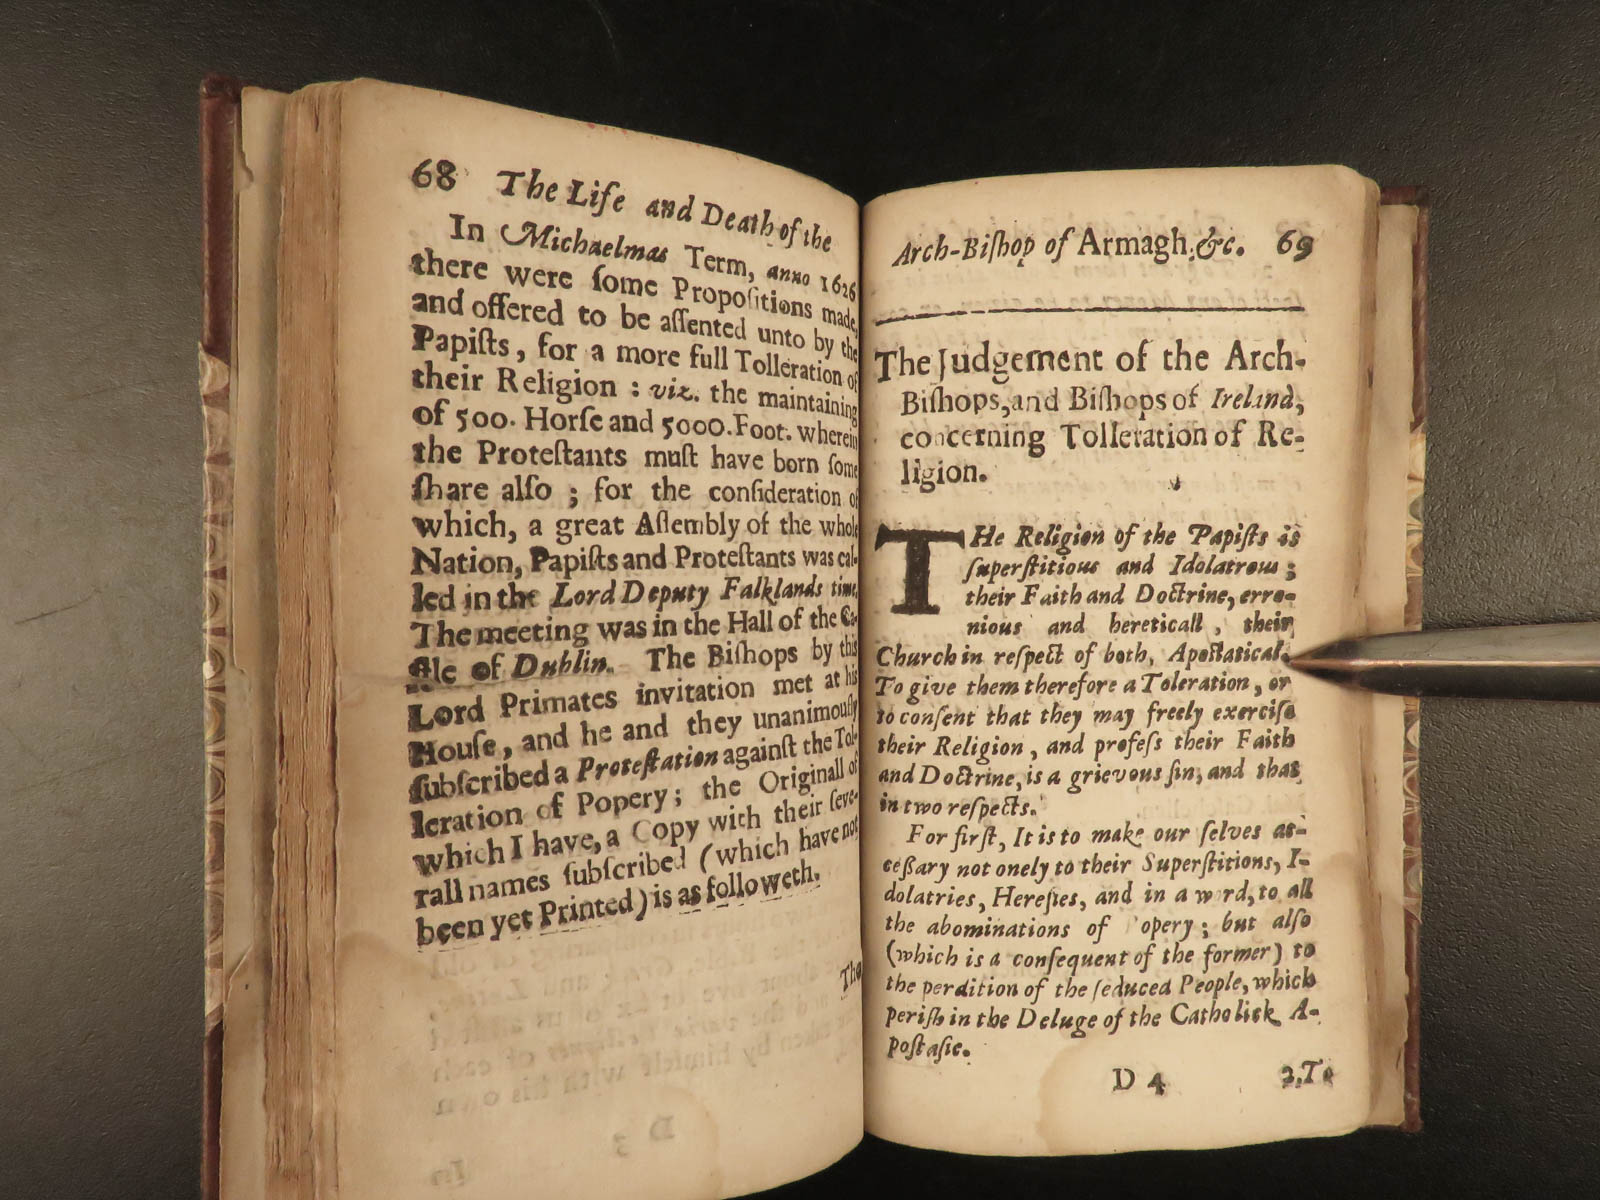 68 The Life and Death of the
In Michaelmas Term, anno 1626
there were ſome Propoſitions made,
and offered to be aſſented unto by the
Papiſts, for a more full Tolleration of
their Religion : viz. the maintaining
of 500. Horſe and 5000. Foot. wherein
the Proteſtants muſt have born ſome
ſhare alſo ; for the conſideration of
which, a great Aſſembly of the whole
Nation, Papiſts and Proteſtants was cal-
led in the Lord Deputy Falklands time,
The meeting was in the Hall of the Ca-
ſtle of Dublin. The Biſhops by this
Lord Primates invitation met at his
Houſe, and he and they unanimouſly
ſubſcribed a Proteſtation againſt the Tol-
leration of Popery ; the Originall of
which I have, a Copy with their ſeve-
rall names ſubſcribed (which have not
been yet Printed) is as followeth.
The
Arch-Biſhop of Armagh, &c. 69
The Judgement of the Arch-
Biſhops, and Biſhops of Ireland,
concerning Tolleration of Re-
ligion.
THe Religion of the Papiſts is
ſuperſtitious and Idolatrous ;
their Faith and Doctrine, erro-
nious and hereticall, their
Church in reſpect of both, Apoſtatical.
To give them therefore a Toleration, or
to conſent that they may freely exerciſe
their Religion, and profeſs their Faith
and Doctrine, is a grievous ſin, and that
in two reſpects.
For firſt, It is to make our ſelves ac-
ceßary not onely to their Superſtitions, I-
dolatries, Hereſies, and in a w rd, to all
the abominations of opery ; but alſo
(which is a conſequent of the former) to
the perdition of the ſeduced People, which
periſh in the Deluge of the Catholick A-
poſtaſie.
D 4 2. To